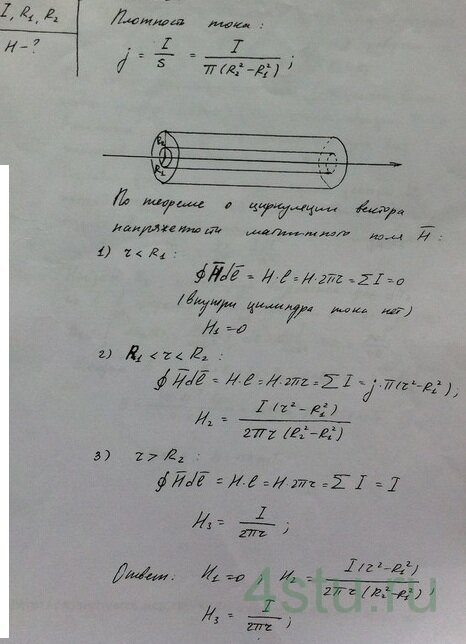 I, R₁, R₂
H - ?
Плотность тока:
j = I/S = I/(π(R₂² - R₁²));
R₂
R₁
По теореме о циркуляции вектора
напряженности магнитного поля H̅:
1) r < R₁:
∮H̅dl̅ = H·l = H·2πr = ΣI = 0
(внутри цилиндра тока нет)
H₁ = 0
2) R₁ < r < R₂:
∮H̅dl̅ = H·l = H·2πr = ΣI = j·π(r² - R₁²);
H₂ = I(r² - R₁²)/(2πr(R₂² - R₁²))
3) r > R₂:
∮H̅dl̅ = H·l = H·2πr = ΣI = I
H₃ = I/(2πr);
Ответ: H₁ = 0; H₂ = I(r² - R₁²)/(2πr(R₂² - R₁²));
H₃ = I/(2πr);
4stu.ru